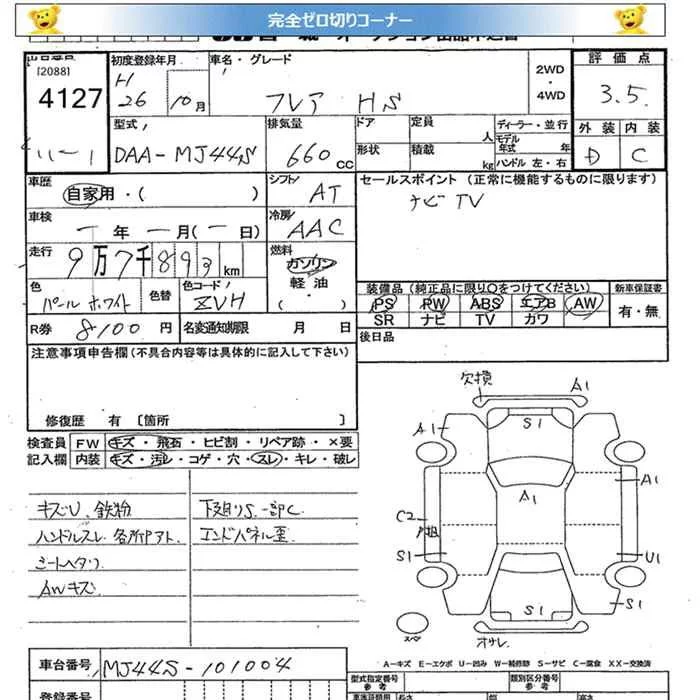 完全ゼロ切りコーナー
[2088]
4127
11-1
初度登録年月
H
26 10月
車名・グレード
フレア HS
2WD
・
4WD
評価点
3.5
外装 内装
D C
型式
DAA-MJ44S
排気量
660 CC
ドア
定員 人
形状
積載 kg
ディーラー・並行
モデル年式 年
ハンドル 左・右
車歴
自家用・( )
シフト
AT
セールスポイント (正常に機能するものに限ります)
ナビ TV
車検
一年 一月(一日)
冷房
AAC
走行
9万7千893km
燃料
ガソリン
軽油
( )
色
パールホワイト
色替
色コード
ZVH
装備品 (純正品に限り○をつけてください)
PS PW ABS エアB AW
SR ナビ TV カワ
新車保証書
有・無
R券 8100円
名変通知期限 月 日
後日品
注意事項申告欄(不具合内容等は具体的に記入して下さい)
修復歴 有 [箇所 ]
検査員
記入欄
FW キズ・飛石・ヒビ割・リペア跡・×要
内装 キズ・汚レ・コゲ・穴・スレ・キレ・破レ
キズU、鉄粉
ハンドルスレ 各所ヤケト.
シートヘタリ
AWキズ
下廻りS.一部C
エンドパネル歪
欠損
A1
A1
S1
A1
A1
C2
S1
U1
S1
S1
スペア
オサレ
車台番号 MJ44S-101004
A－キズ E－エクボ U－凹み W－補修跡 S－サビ C－腐食 XX－交換済
登録番号
型式指定番号
参考
類別区分番号
参考
長さ
幅
高さ